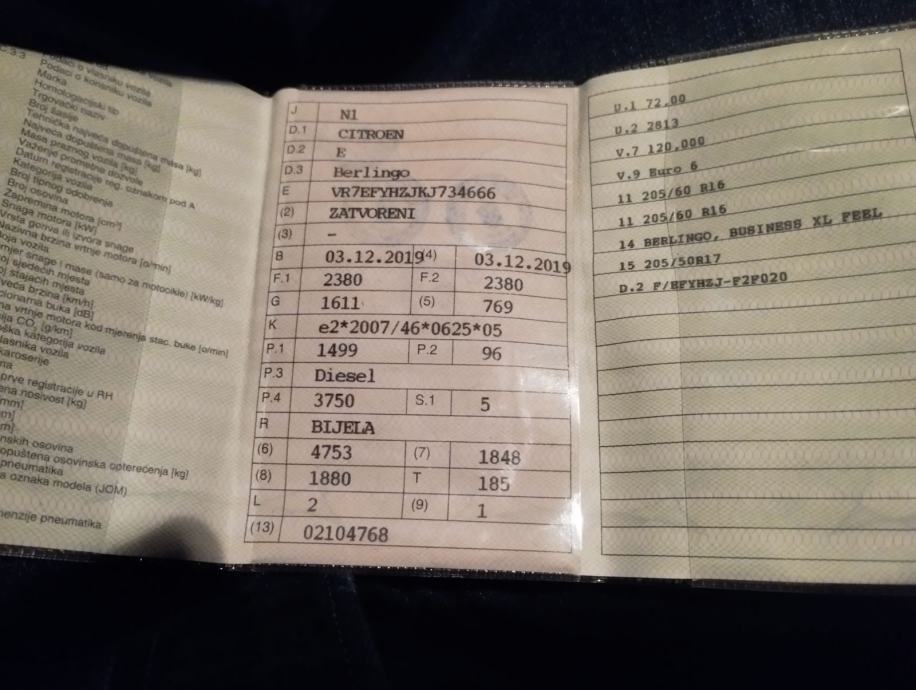 C.3.3
Podaci o vlasniku vozila
Podaci o korisniku vozila
Marka
Homologacijski tip
Trgovački naziv
Broj šasije
Tehnička najveća dopuštena masa [kg]
Najveća dopuštena masa [kg]
Masa praznog vozila [kg]
Važenje prometne dozvole
Datum registracije reg. oznakom pod A
Kategorija vozila
Broj tipnog odobrenja
Broj osovina
Zapremina motora [cm³]
Snaga motora [kW]
Vrsta goriva ili izvora snage
Nazivna brzina vrtnje motora [o/min]
boja vozila
mjer snage i mase (samo za motocikle) [kW/kg]
oj sjedećih mjesta
oj stajaćih mjesta
većá brzina [km/h]
cionarna buka [dB]
na vrtnje motora kod mjerenja stac. buke [o/min]
ija CO₂ [g/km]
oška kategorija vozila
lasnika vozila
karoserije
prve registracije u RH
ena nosivost [kg]
mm]
m]
m]
nskih osovina
opuštena osovinska opterećenja [kg]
pneumatika
a oznaka modela (JOM)
nenzije pneumatika
J N1
D.1 CITROEN
D.2 E
D.3 Berlingo
E VR7EFYHZJKJ734666
(2) ZATVORENI
(3) -
B 03.12.2019 (4) 03.12.2019
F.1 2380 F.2 2380
G 1611 (5) 769
K e2*2007/46*0625*05
P.1 1499 P.2 96
P.3 Diesel
P.4 3750 S.1 5
R BIJELA
(6) 4753 (7) 1848
(8) 1880 T 185
L 2 (9) 1
(13) 02104768
U.1 72,00
U.2 2813
V.7 120,000
V.9 Euro 6
11 205/60 R16
11 205/60 R16
14 BERLINGO, BUSINESS XL FEEL
15 205/50R17
D.2 F/EFYHZJ-F2F020